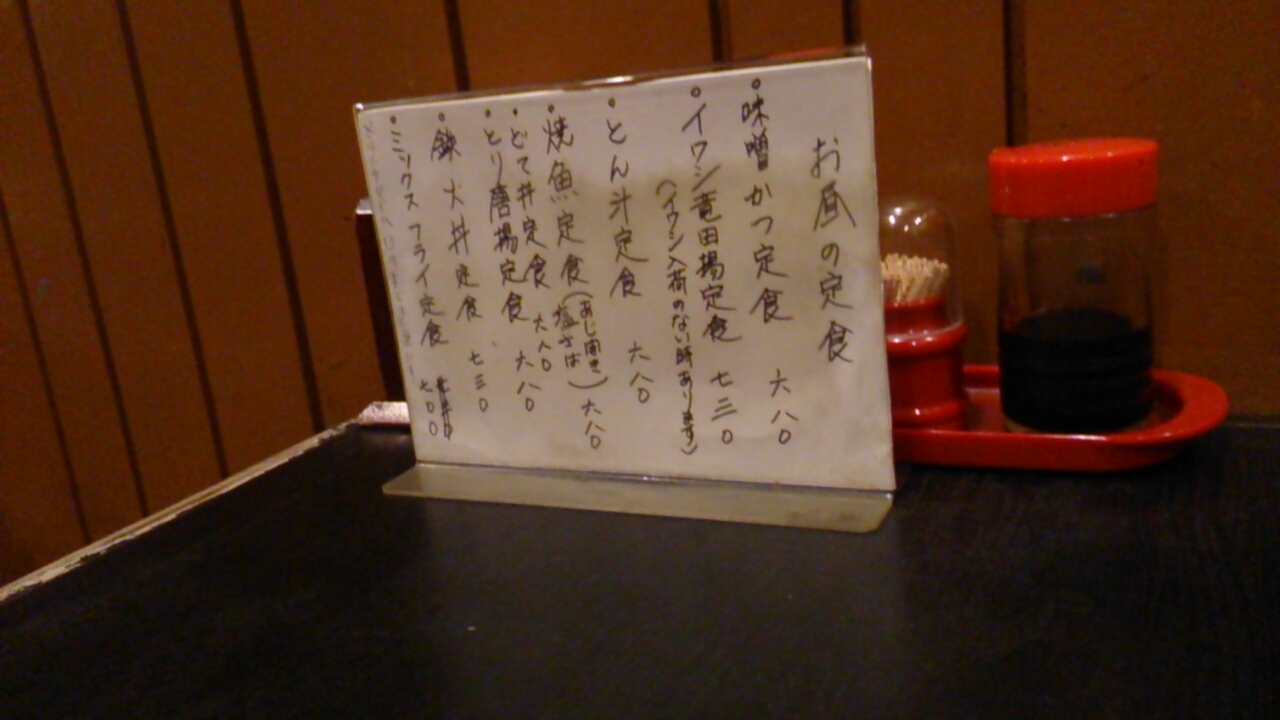 お昼の定食
味噌かつ定食 六八〇
イワシ竜田揚定食 七三〇
(イワシ入荷のない時あります)
とん汁定食 六八〇
焼魚定食(あじ開き 塩さば) 六八〇
どて丼定食 六八〇
とり唐揚定食 六八〇
鉄火丼定食 七三〇
ミックスフライ定食 七〇〇